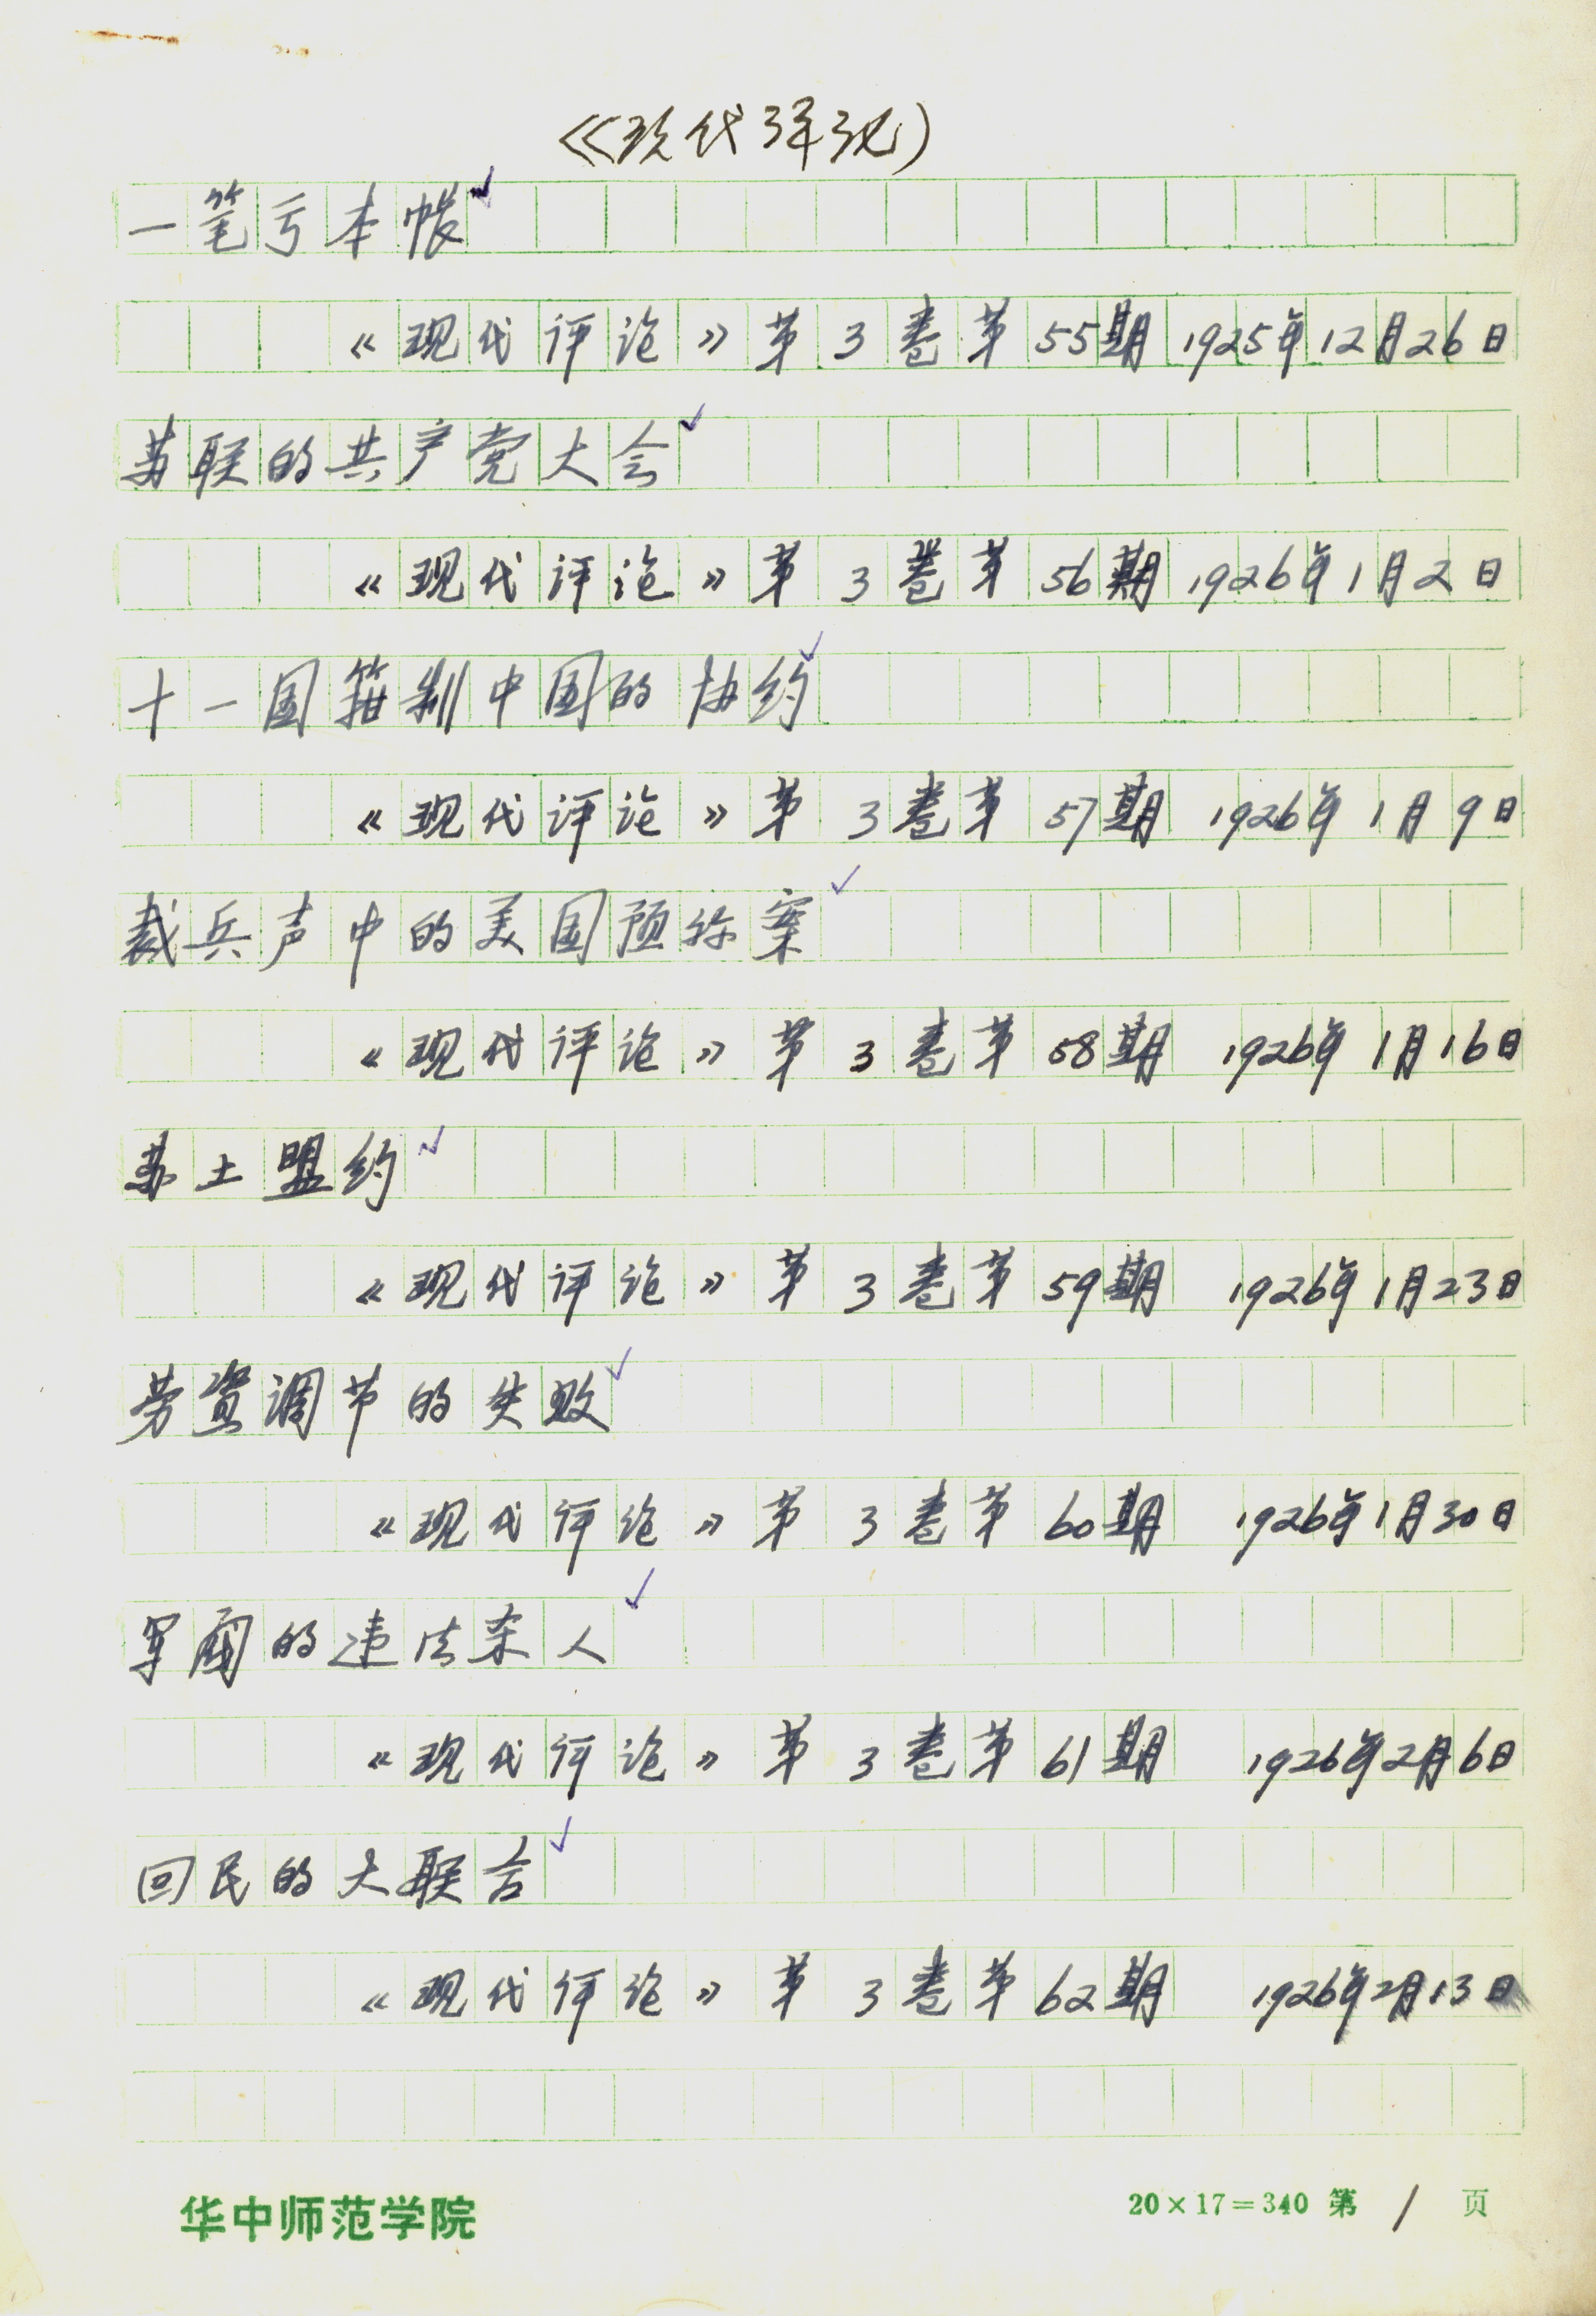 《现代评论》
一笔亏本帐
《现代评论》第3卷第55期 1925年12月26日
苏联的共产党大会
《现代评论》第3卷第56期 1926年1月2日
十一国箝制中国的协约
《现代评论》第3卷第57期 1926年1月9日
裁兵声中的美国预算案
《现代评论》第3卷第58期 1926年1月16日
苏土盟约
《现代评论》第3卷第59期 1926年1月23日
劳资调节的失败
《现代评论》第3卷第60期 1926年1月30日
军阀的违法杀人
《现代评论》第3卷第61期 1926年2月6日
回民的大联合
《现代评论》第3卷第62期 1926年2月13日
华中师范学院 20×17=340 第 1 页